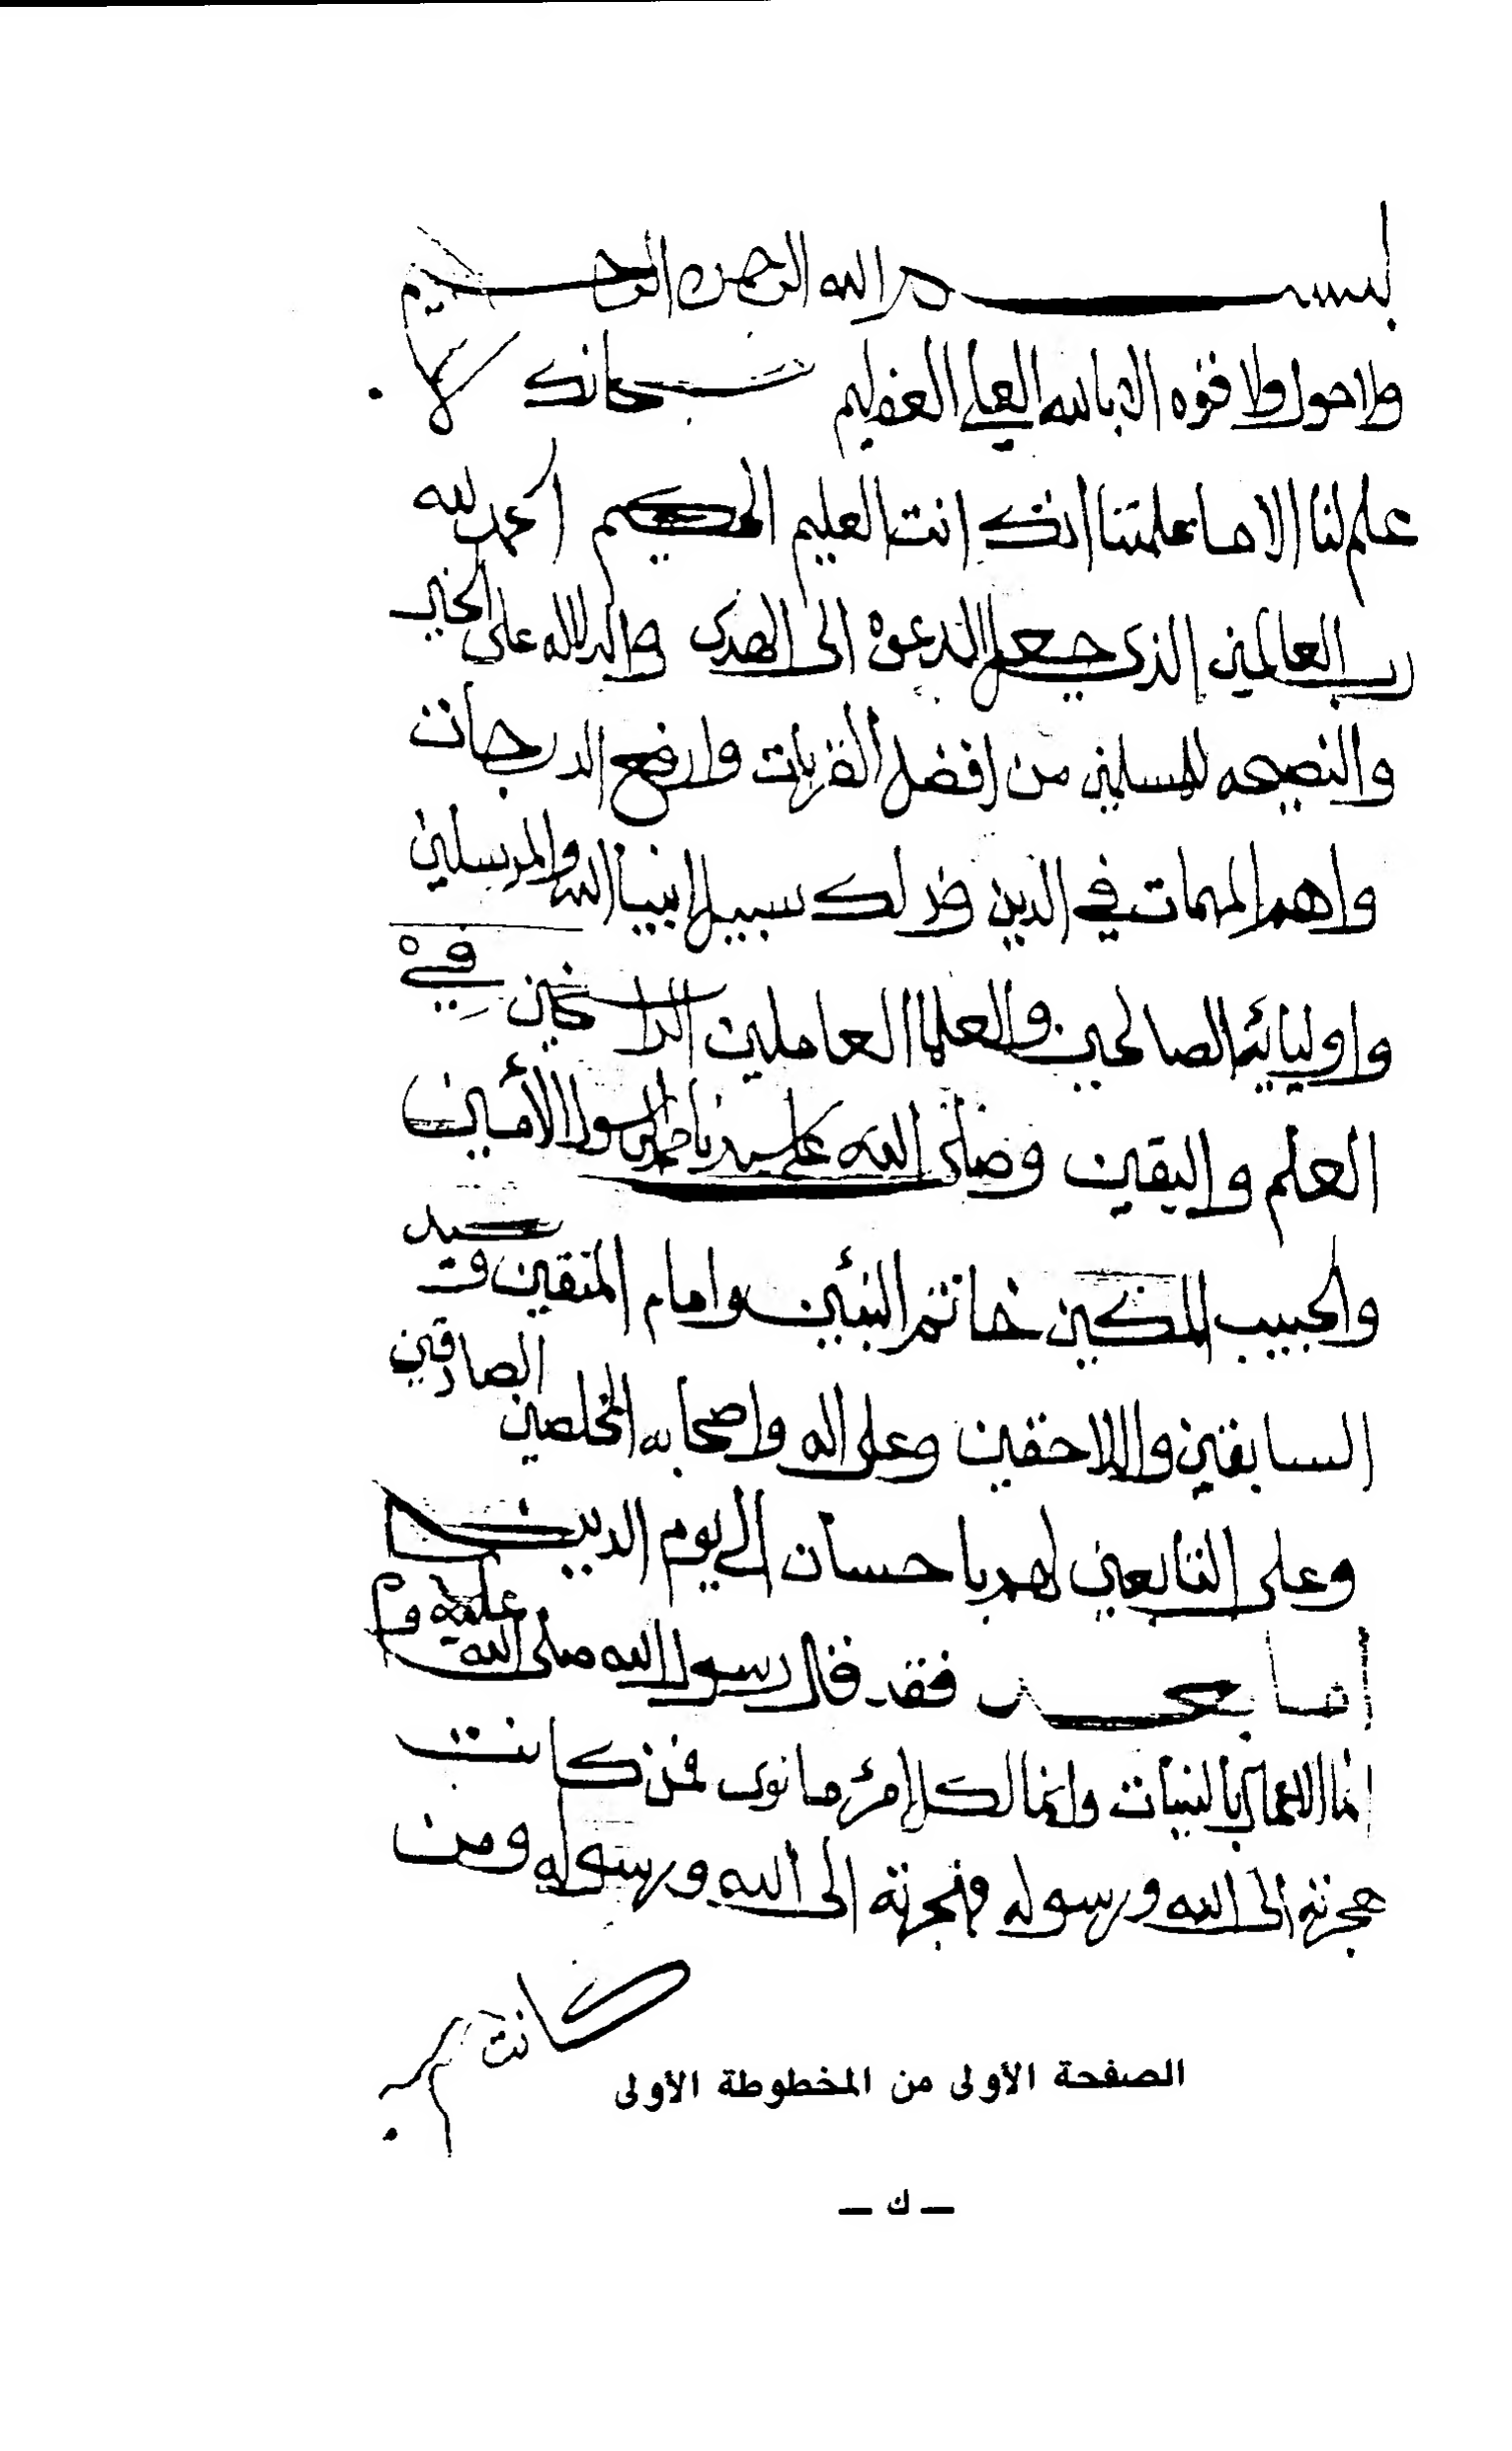 بسم الله الرحمن الرحيم
ولا حول ولا قوه الا بالله العلي العظيم سبحانك لا
علم لنا الا ما علمتنا انك انت العليم الحكيم الحمد لله
رب العالمين الذي جعل الدعوه الى الهدى والدلاله على الخير
والنصيحه للمسلمين من افضل القربات وارفع الدرجات
واهم المهمات في الدين وذلك سبيل انبيا الله والمرسلين
واوليائه الصالحين والعلما العاملين الراسخين في
العلم واليقين وصلى الله على سيدنا محمد الرسول الأمين
والحبيب المكين خاتم النبئين وامام المتقين وسيد
السابقين واللاحقين وعلى اله واصحابه المخلصين الصادقين
وعلى التابعين لهم باحسان الى يوم الدين
اما بعد فقد قال رسول الله صلى الله عليه و
انما الاعمال بالنيات وانما لكل امرئ ما نوى فمن كانت
هجرته الى الله ورسوله فهجرته الى الله ورسوله ومن
كانت
الصفحة الأولى من المخطوطة الأولى
— ك —